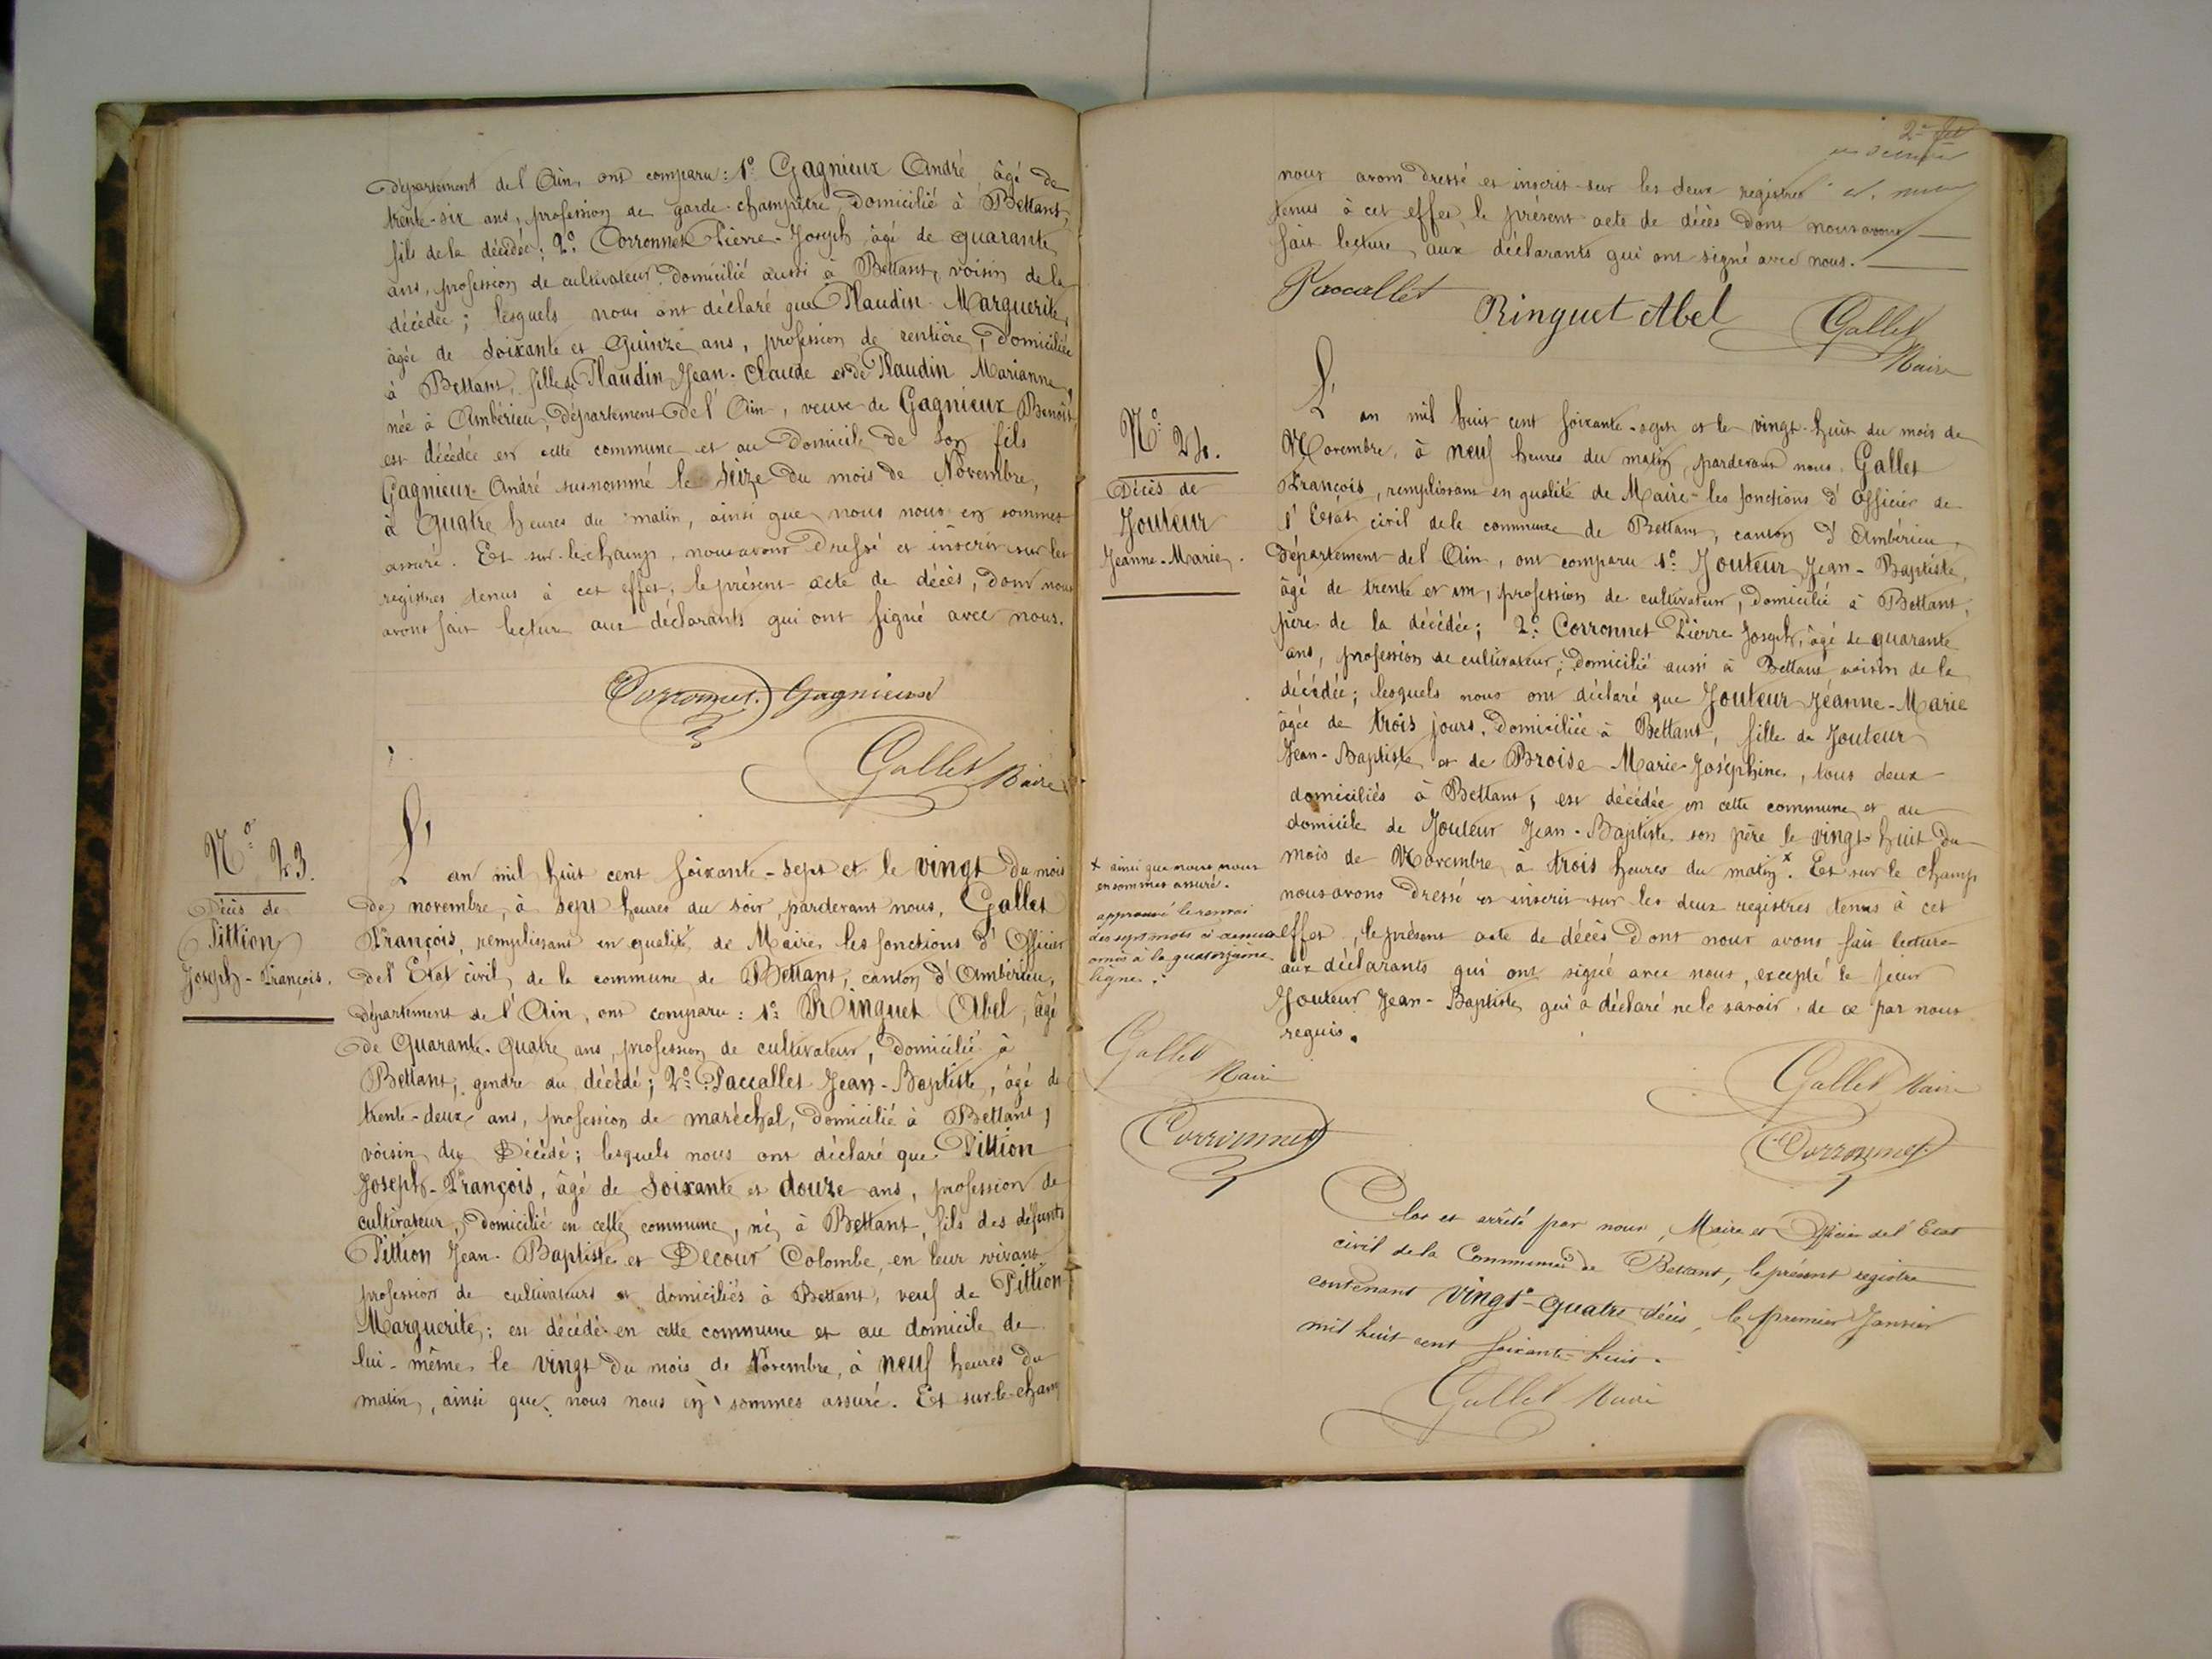 Département de l'Ain, ont comparu : 1° Gagnieux André, âgé de
trente-six ans, profession de garde-champêtre, domicilié à Bettant,
fils de la décédée ; 2° Corronnet Pierre-Joseph, âgé de quarante
ans, profession de cultivateur, domicilié aussi à Bettant, voisin de la
décédée ; lesquels nous ont déclaré que Plaudin Marguerite,
âgée de soixante et quinze ans, profession de rentière, domiciliée
à Bettant, fille de Plaudin Jean-Claude et de Plaudin Marianne,
née à Ambérieu, département de l'Ain, veuve de Gagnieux Benoît,
est décédée en cette commune et au domicile de son fils
Gagnieux André susnommé le seize du mois de Novembre,
à quatre heures du matin, ainsi que nous nous en sommes
assuré. Et sur-le-champ, nous avons dressé et inscrit sur les
registres tenus à cet effet, le présent acte de décès, dont nous
avons fait lecture aux déclarants qui ont signé avec nous.
Corronnet. Gagnieux
Gallet Maire
N° 23.
Décès de
Pittion
Joseph-François.
L'an mil huit cent soixante-sept et le vingt du mois
de novembre, à sept heures du soir, pardevant nous, Gallet
François, remplissant en qualité de Maire, les fonctions d'Officier
de l'État civil de la commune de Bettant, canton d'Ambérieu,
département de l'Ain, ont comparu : 1° Ringuet Abel, âgé
de Quarante-quatre ans, profession de cultivateur, domicilié à
Bettant, gendre du décédé ; 2° Paccallet Jean-Baptiste, âgé de
trente-deux ans, profession de maréchal, domicilié à Bettant,
voisin du Décédé ; lesquels nous ont déclaré que Pittion
Joseph-François, âgé de soixante et douze ans, profession de
cultivateur, domicilié en cette commune, né à Bettant, fils des défunts
Pittion Jean-Baptiste et Decour Colombe, en leur vivant
profession de cultivateurs et domiciliés à Bettant, veuf de Pittion
Marguerite ; est décédé en cette commune et au domicile de
lui-même, le vingt du mois de Novembre, à neuf heures du
matin, ainsi que nous nous en sommes assuré. Et sur-le-champ
nous avons dressé et inscrit sur les deux registres
tenus à cet effet, le présent acte de décès dont nous avons
fait lecture aux déclarants qui ont signé avec nous.
Paccallet
Ringuet Abel
Gallet
Maire
N° 24.
Décès de
Jouteur
Jeanne-Marie.
L'an mil huit cent soixante-sept et le vingt-huit du mois de
Novembre, à neuf heures du matin, pardevant nous, Gallet
François, remplissant en qualité de Maire les fonctions d'Officier de
l'Etat civil de la commune de Bettant, canton d'Ambérieu,
département de l'Ain, ont comparu 1° Jouteur Jean-Baptiste,
âgé de trente et un, profession de cultivateur, domicilié à Bettant,
père de la décédée ; 2° Corronnet Pierre Joseph, âgé de quarante
ans, profession de cultivateur, domicilié aussi à Bettant voisin de la
décédée ; lesquels nous ont déclaré que Jouteur Jeanne-Marie
âgée de trois jours, domiciliée à Bettant, fille de Jouteur
Jean-Baptiste et de Broise Marie-Joséphine, tous deux
domiciliés à Bettant, est décédée en cette commune et au
domicile de Jouteur Jean-Baptiste son père le vingt-huit du
mois de Novembre à trois heures du matin x. Et sur le champ
nous avons dressé et inscrit sur les deux registres tenus à cet
effet, le présent acte de décès dont nous avons fait lecture
aux déclarants qui ont signé avec nous, excepté le sieur
Jouteur Jean-Baptiste qui a déclaré ne le savoir de ce par nous
requis.
x ainsi que nous nous
en sommes assuré.
approuvé le renvoi
des sept mots ci-dessus
omis à la quatorzième
ligne.
Gallet
Maire
Corronnet
Gallet Maire
Corronnet
Clos et arrêté par nous, Maire et Officier de l'Etat
civil de la Commune de Bettant, le présent registre
contenant vingt-quatre décès, le premier Janvier
mil huit cent soixante-huit.
Gallet Maire